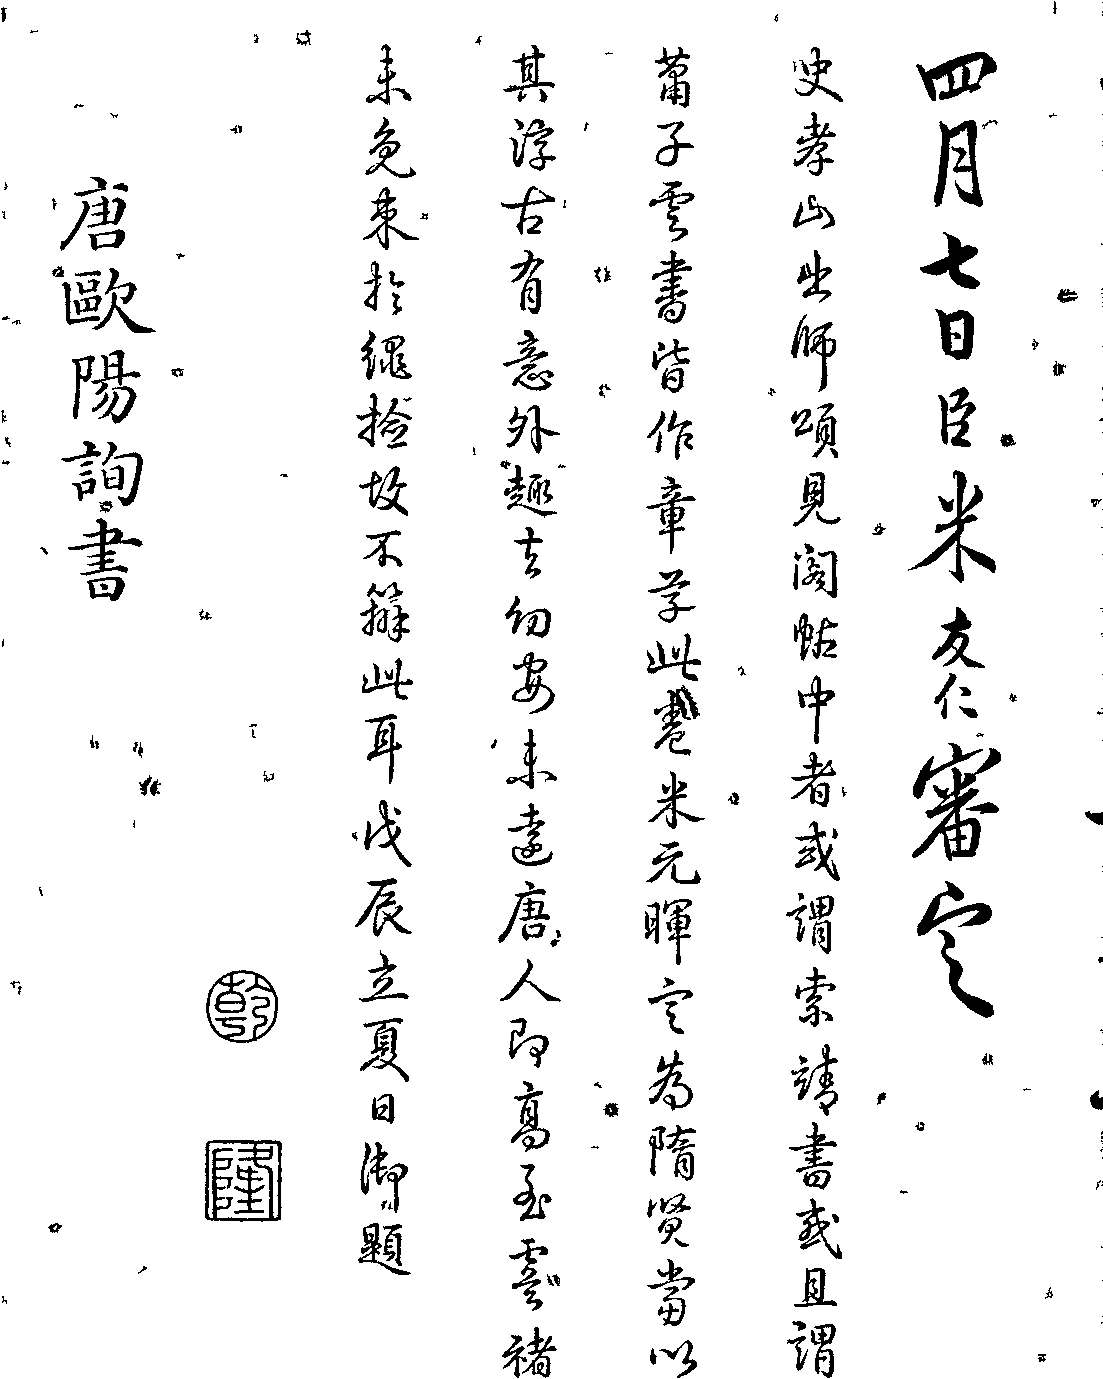 四月七日臣米友仁審定
史孝山出師頌見閣帖中者或謂索靖書或且謂
蕭子雲書皆作章草此卷米元暉定為隋賢當以
其淳古有意外趣去幼安未遠唐人即高至虞褚
未免束於繩撿故不辦此耳戊辰立夏日御題
乾
隆
唐歐陽詢書